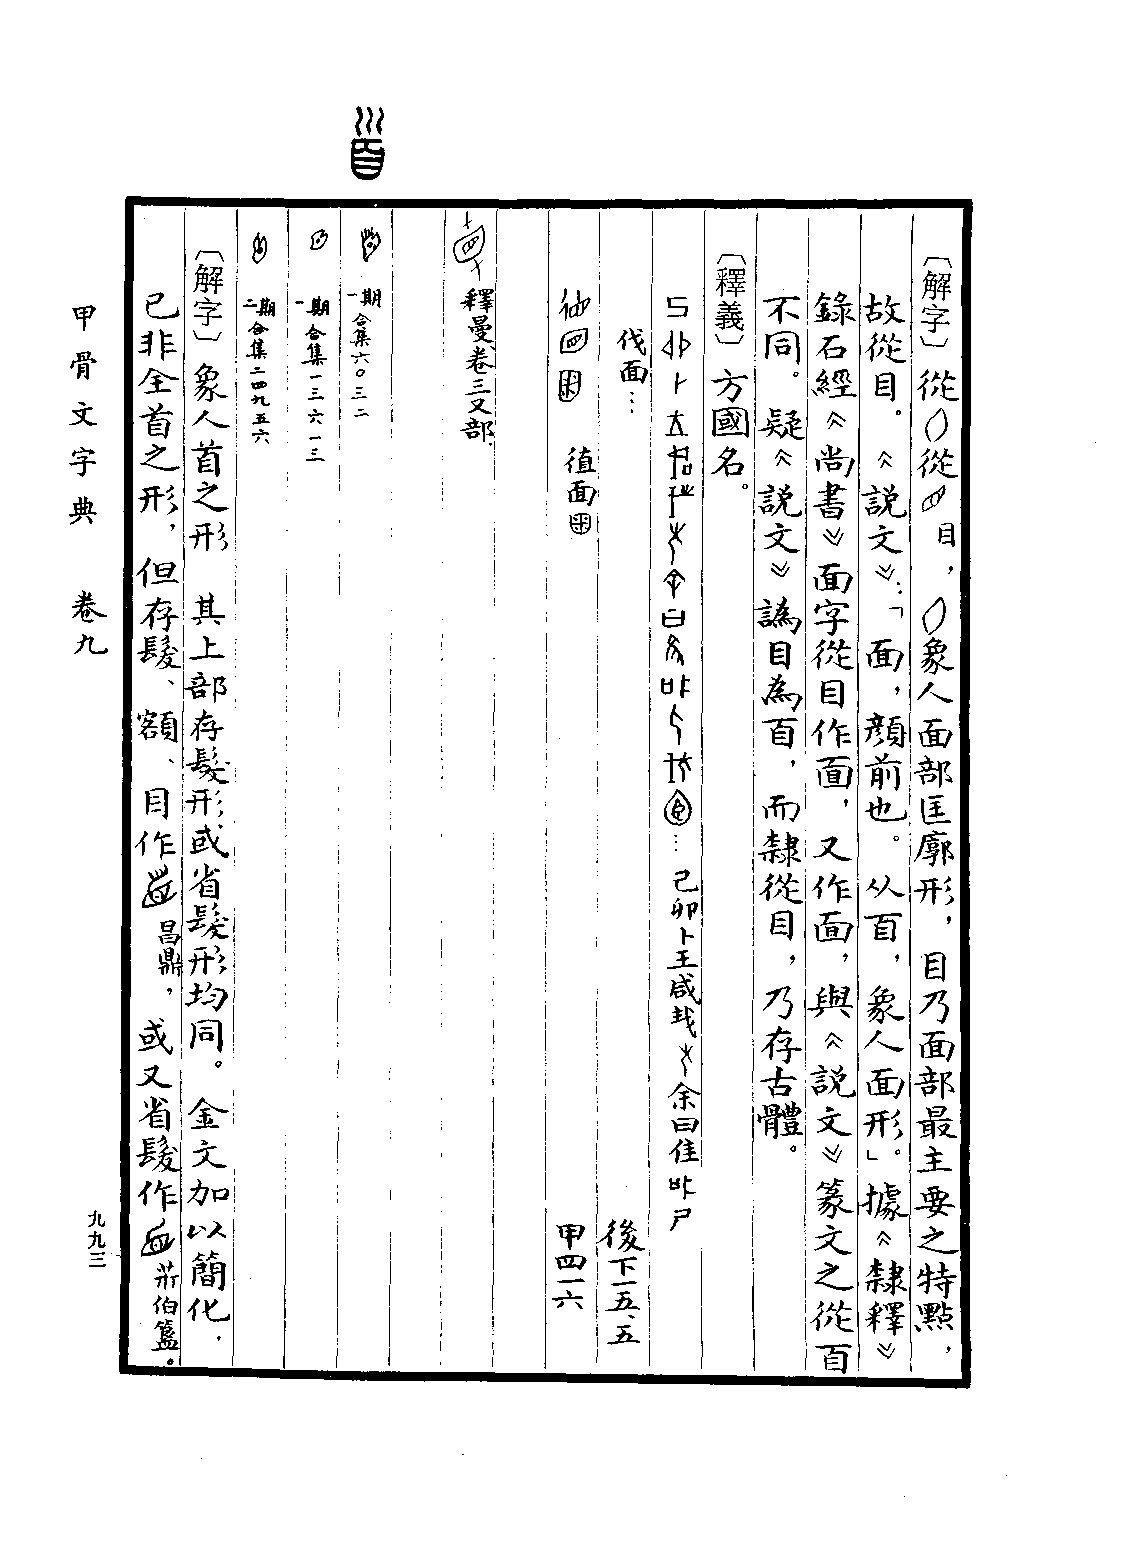 𩠐
〔解字〕從〇從目，〇象人面部匡廓形，目乃面部最主要之特點，
故從目。《說文》：「面，顏前也。从𦣻，象人面形」。據《隸釋》
錄石經《尚書》面字從目作面，又作面，與《說文》篆文之從𦣻
不同。疑《說文》譌目為𦣻，而隸從目，乃存古體。
〔釋義〕方國名。
…己卯卜王咸𢦏余曰隹
伐面… 後下一五、五
徝面田 甲四一六
釋曼卷三又部
一期 合集六〇三二
一期 合集一三六一三
二期 合集二四九五六
〔解字〕象人首之形 其上部存髮形或省髮形均同。金文加以簡化，
已非全首之形，但存髮、額、目作 昌鼎，或又省髮作 莊伯簋。
甲骨文字典 卷九
九九三